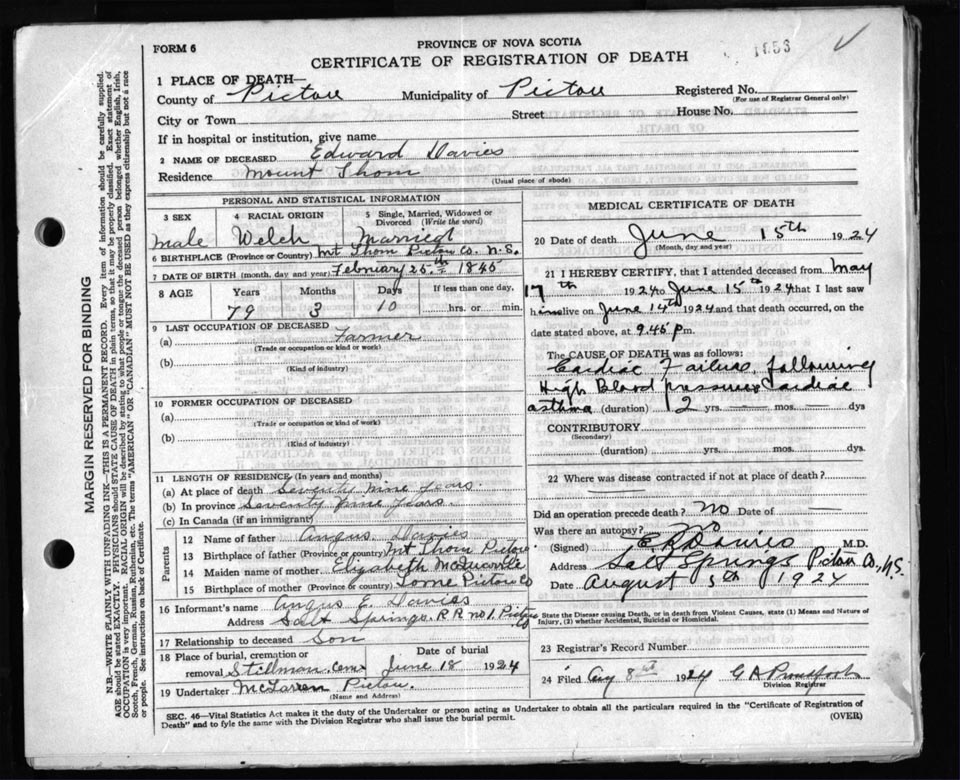 FORM 6
PROVINCE OF NOVA SCOTIA
CERTIFICATE OF REGISTRATION OF DEATH
1 PLACE OF DEATH—
County of Pictou Municipality of Pictou Registered No.
(For use of Registrar General only)
City or Town Street House No.
If in hospital or institution, give name
2 NAME OF DECEASED Edward Davies
Residence Mount Thom
(Usual place of abode)
PERSONAL AND STATISTICAL INFORMATION
3 SEX 4 RACIAL ORIGIN 5 Single, Married, Widowed or Divorced (Write the word)
male Welch Married
6 BIRTHPLACE (Province or Country) Mt Thom Pictou Co. N.S.
7 DATE OF BIRTH (month, day and year) February 25th 1845
8 AGE Years Months Days If less than one day,
79 3 10 hrs. or min.
9 LAST OCCUPATION OF DECEASED
(a) Farmer
(Trade or occupation or kind or work)
(b)
(Kind of industry)
10 FORMER OCCUPATION OF DECEASED
(a)
(Trade or occupation or kind of work)
(b)
(Kind of industry)
11 LENGTH OF RESIDENCE (In years and months)
(a) At place of death Seventy nine years.
(b) In province Seventy nine years.
(c) In Canada (if an immigrant)
Parents
12 Name of father Angus Davies
13 Birthplace of father (Province or country) Mt Thom Pictou
14 Maiden name of mother Elizabeth
15 Birthplace of mother (Province or country) Lorne Pictou Co
16 Informant's name Angus E. Davies
Address Salt Springs R R no 1. Pictou Co
17 Relationship to deceased Son
18 Place of burial, cremation or removal Stillman Cem. Date of burial June 18 1924
19 Undertaker McLarren Pictou
(Name and Address)
MEDICAL CERTIFICATE OF DEATH
20 Date of death June 15th 1924
(Month, day and year)
21 I HEREBY CERTIFY, that I attended deceased from May
17th 1924 to June 15th 1924 that I last saw
him alive on June 14th 1924 and that death occurred, on the
date stated above, at 9.45 p.m.
The CAUSE OF DEATH was as follows:
Cardiac Failure, following
High Blood pressure & cardiac
asthma (duration) 2 yrs. — mos. — dys
CONTRIBUTORY
(Secondary)
(duration) yrs. mos. dys.
22 Where was disease contracted if not at place of death?
Did an operation precede death? No Date of —
Was there an autopsy? No
(Signed) E R Davies M.D.
Address Salt Springs Pictou Co., N.S.
Date August 5th 1924
State the Disease causing Death, or in death from Violent Causes, state (1) Means and Nature of Injury, (2) whether Accidental, Suicidal or Homicidal.
23 Registrar's Record Number
24 Filed Aug 8th 1924 G A Proudfoot
Division Registrar
SEC. 46—Vital Statistics Act makes it the duty of the Undertaker or person acting as Undertaker to obtain all the particulars required in the "Certificate of Registration of
Death" and to fyle the same with the Division Registrar who shall issue the burial permit.
(OVER)
MARGIN RESERVED FOR BINDING
N.B.—WRITE PLAINLY WITH UNFADING INK—THIS IS A PERMANENT RECORD. Every item of information should be carefully supplied.
AGE should be stated EXACTLY. PHYSICIANS should STATE CAUSE OF DEATH in plain terms, so that it may be properly classified. Exact statement of
OCCUPATION is very important. RACIAL ORIGIN will be described by stating to what people or tongue the deceased person belonged whether English, Irish,
Scotch, French, German, Russian, Ruthenian, etc. The terms "AMERICAN" OR "CANADIAN" MUST NOT BE USED as they express citizenship but not a race
or people. See instructions on back of Certificate.